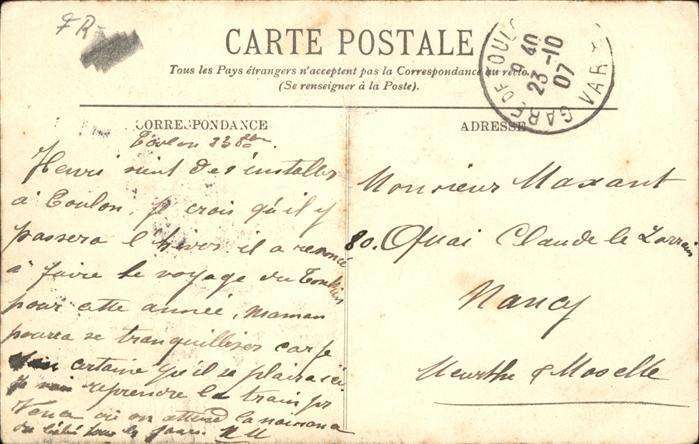 FR-
CARTE POSTALE
Tous les Pays étrangers n'acceptent pas la Correspondance au recto.
(Se renseigner à la Poste).
GARE DE TOULON VAR
9 40
23-10
07
CORRESPONDANCE
Toulon 23 8bre
Henri vient de s'installer
à Toulon, je crois qu'il y
passera l'hiver il a renoncé
à faire le voyage du Tonkin
pour cette année, Maman
pourra se tranquilliser car je
suis certaine qu'il se plaira ici
je vais reprendre le train pr
où on attend la naissance
du bébé tous les jours
ADRESSE
Monsieur Maxant
80. Quai Claude le Lorrain
Nancy
Meurthe & Moselle